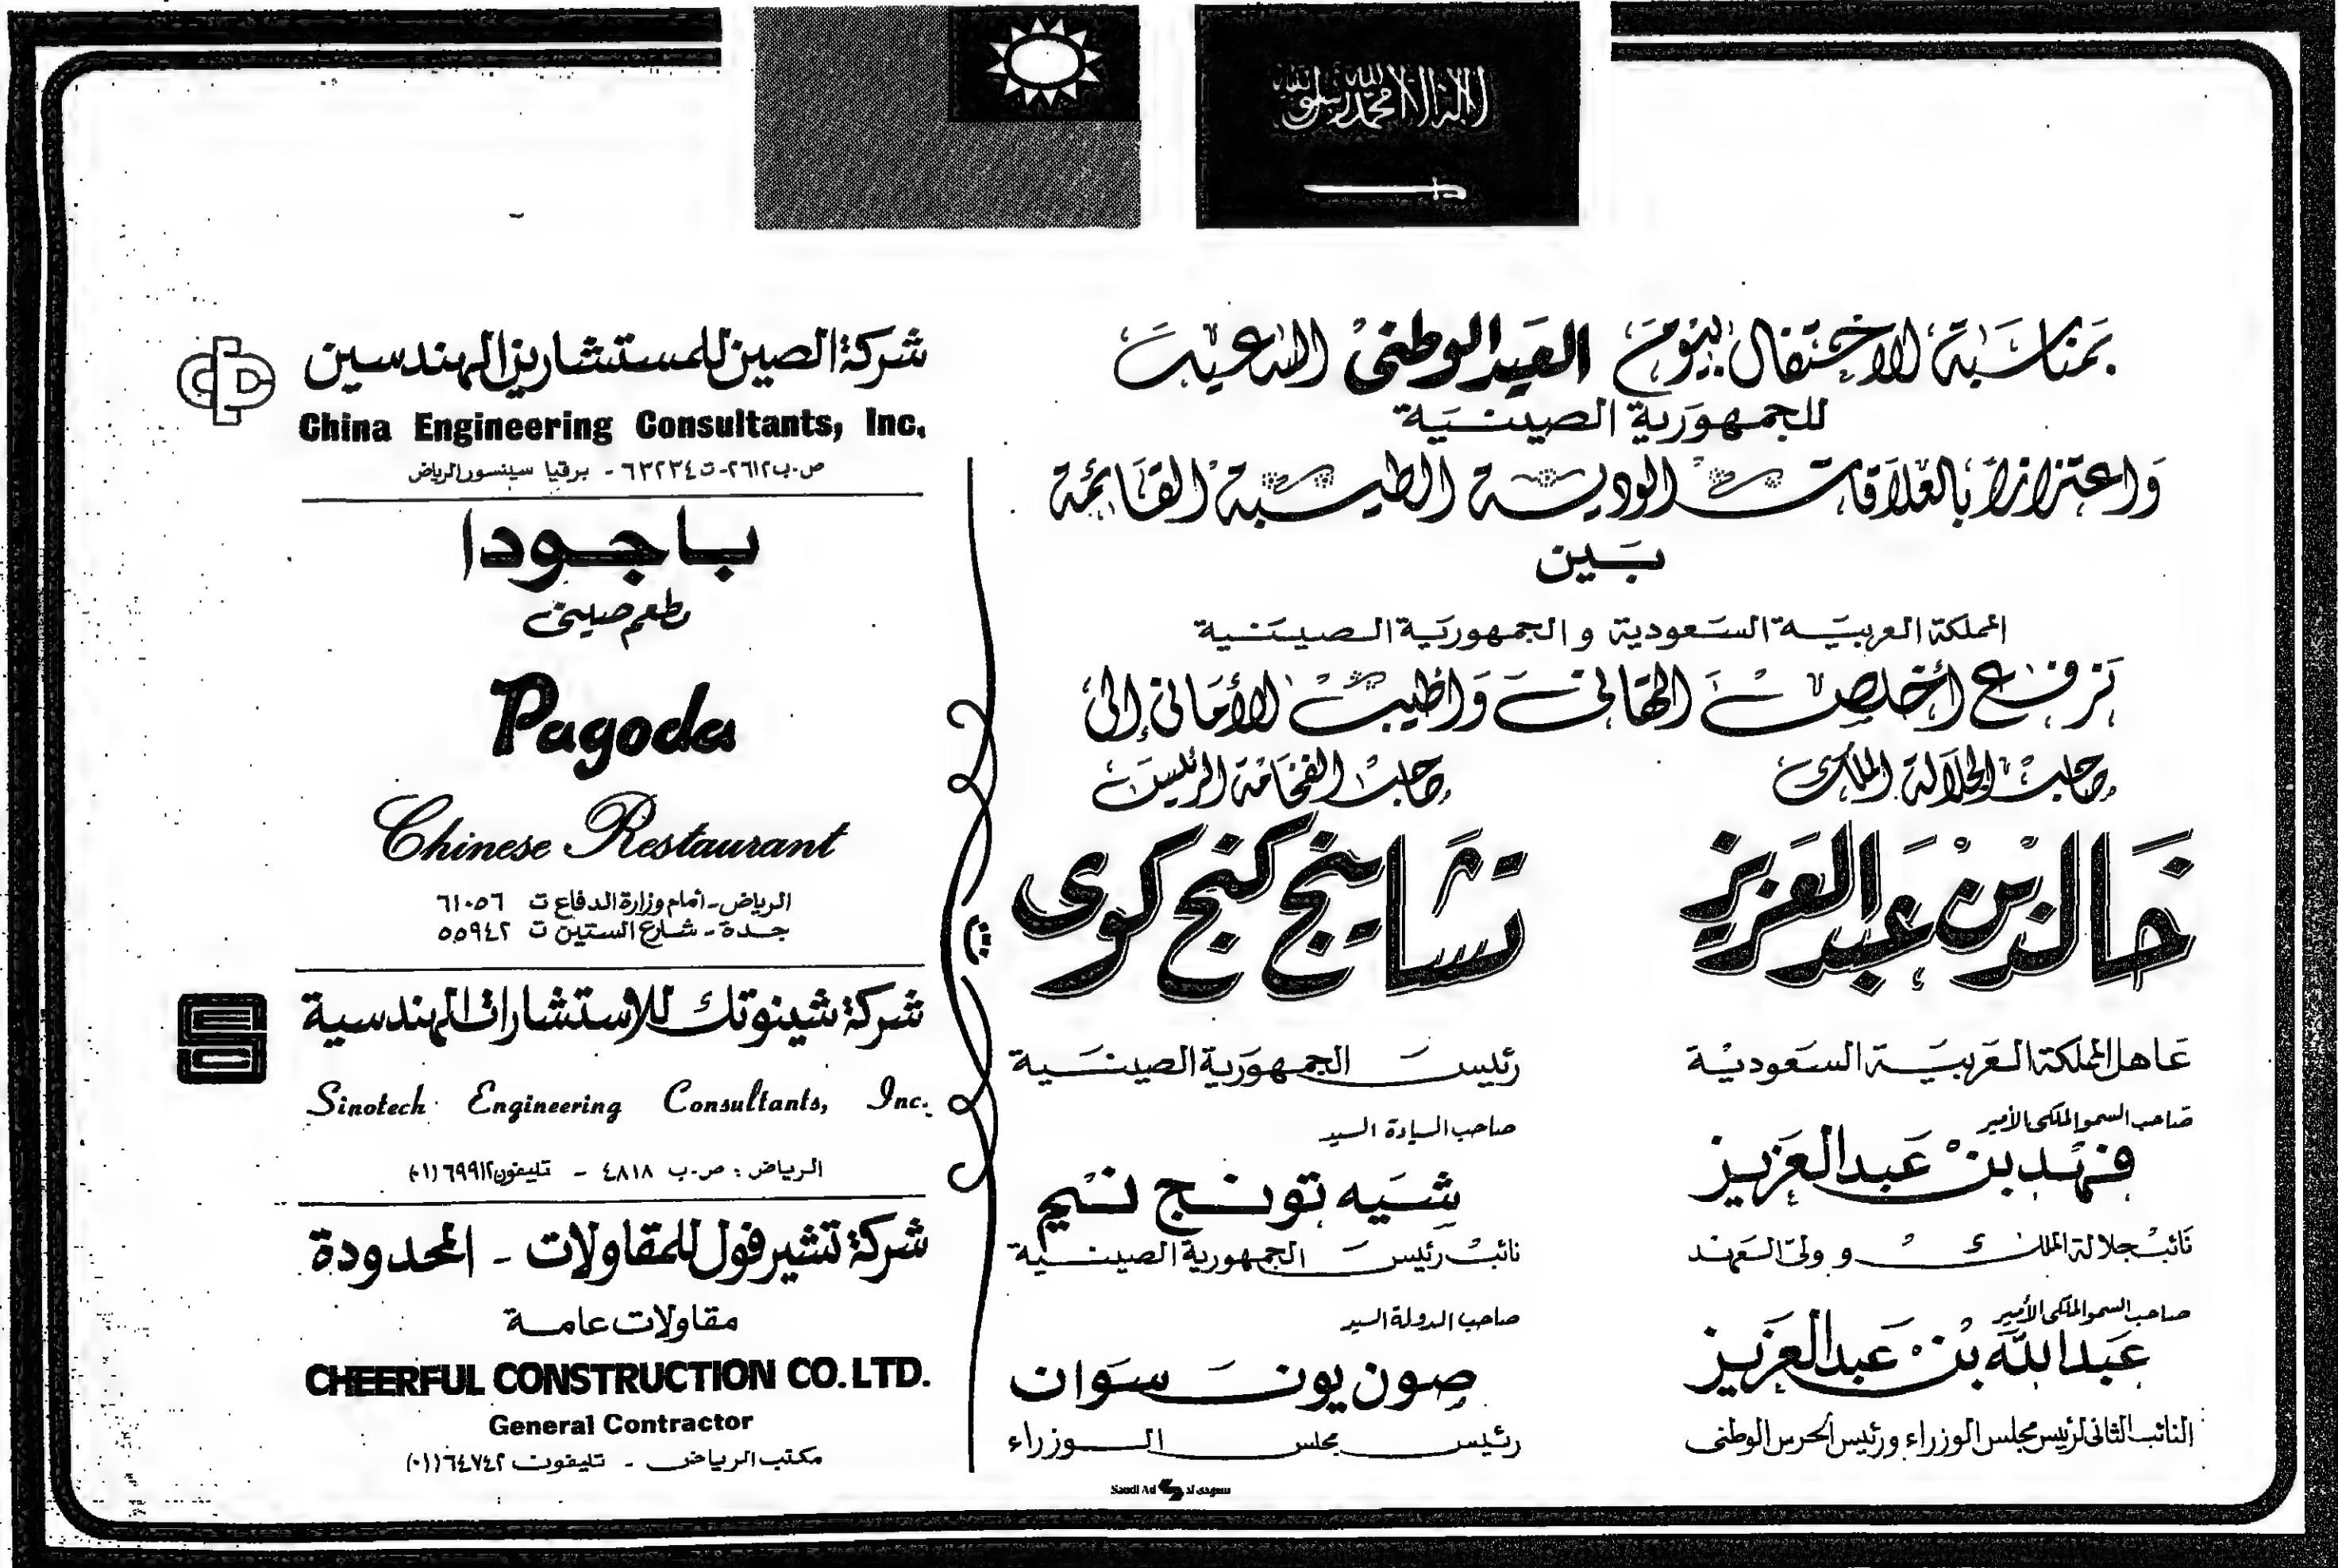 لا إله إلا الله محمد رسول الله
بمناسبة الاحتفال بيوم العيد الوطنى السعيد
للجمهورية الصينية
واعتزازاً بالعلاقات الودية الطيبة القائمة
بين
المملكة العربية السعودية والجمهورية الصينية
نرفع أخلص التهانى وأطيب الأمانى إلى
صاحب الجلالة الملك
خالد بن عبد العزيز
عاهل المملكة العربية السعودية
صاحب السمو الملكى الأمير
فهد بن عبد العزيز
نائب جلالة الملك و ولى العهد
صاحب السمو الملكى الأمير
عبد الله بن عبد العزيز
النائب الثانى لرئيس مجلس الوزراء ورئيس الحرس الوطنى
صاحب الفخامة الرئيس
تشاينج كنج كوى
رئيس الجمهورية الصينية
صاحب السيادة السيد
شيه تونج نيم
نائب رئيس الجمهورية الصينية
صاحب الدولة السيد
صون يون سوان
رئيس مجلس الوزراء
شركة الصين للمستشارين المهندسين
China Engineering Consultants, Inc.
ص.ب ٢٦١٢ - ت ٦٣٢٣٤ - برقيا سينسور الرياض
باجودا
مطعم صينى
Pagoda
Chinese Restaurant
الرياض - أمام وزارة الدفاع ت ٦١٠٥٦
جدة - شارع الستين ت ٥٥٩٤٢
شركة شينوتك للاستشارات الهندسية
Sinotech Engineering Consultants, Inc.
الرياض : ص.ب ٤٨١٨ - تليفون ٦٩٩١٢ (٠١)
شركة تشيرفول للمقاولات - المحدودة
مقاولات عامة
CHEERFUL CONSTRUCTION CO. LTD.
General Contractor
مكتب الرياض - تليفون ٦٤٧٤٢ (٠١)
Saudi Ad سعودى اد